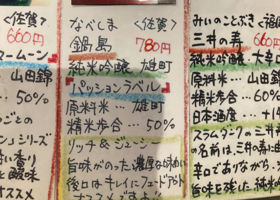 660円
ームーン
山田錦
50%
ごとの
ンシリーズ
い香り
と酸味
オススメ
なべしま 〈佐賀〉
鍋島 780円
純米吟醸 雄町
パッションラベル
原料米… 雄町
精米歩合… 50%
リッチ&ジューシー
旨味がのった濃厚な味わい
後口はキレイにフェードアウト
オススメ
みいのことぶき 〈福
三井の寿 660
純米吟醸 大辛口
原料米… 山田錦
精米歩合… 60
日本酒度… +14
スラムダンクの三井
の名前は、三井の
辛口でありながら、
旨味を残した純米